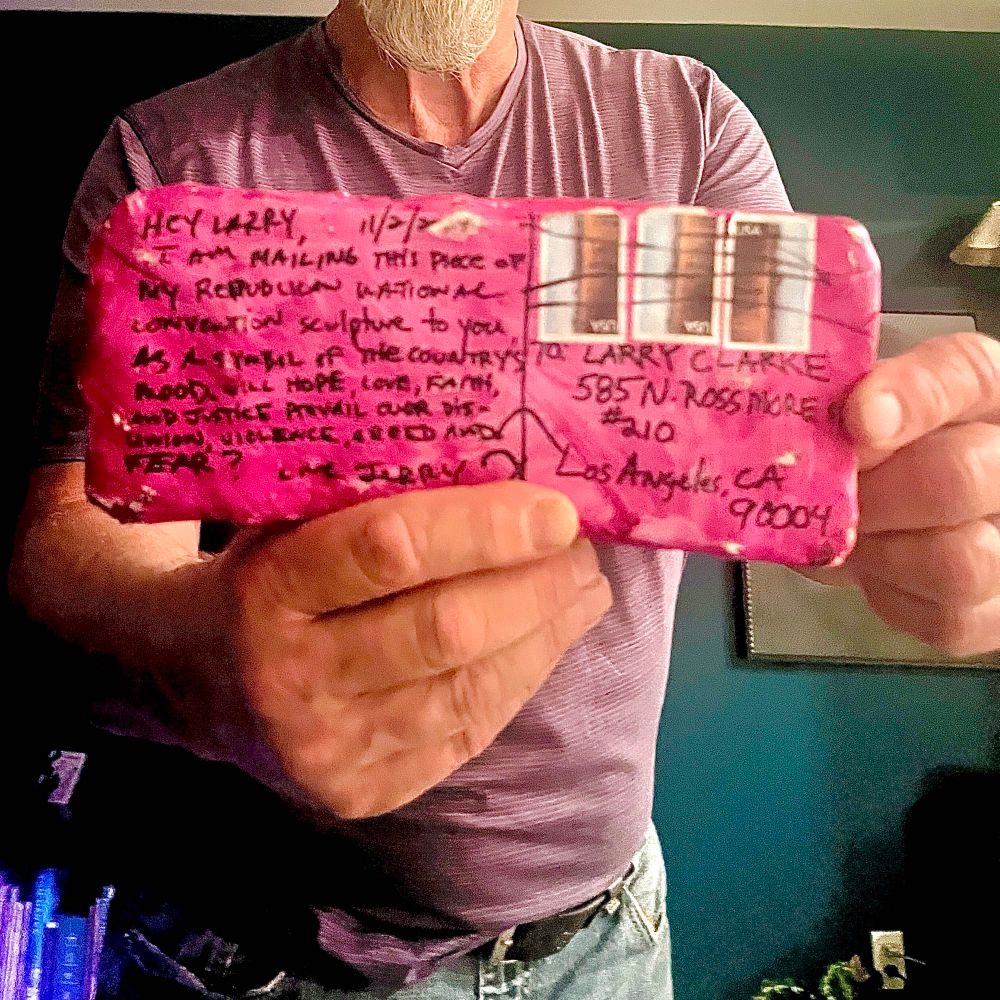 HEY LARRY, 11/2/2
I AM MAILING THIS PIECE OF
MY REPUBLICAN NATIONAL
CONVENTION sculpture to you,
AS A SYMBOL OF THE COUNTRY'S
MOOD. WILL HOPE, LOVE, FAITH,
AND JUSTICE PREVAIL OVER DIS-
UNION, VIOLENCE, GREED AND
FEAR? JERRY
USA
USA
USA
TO: LARRY CLARKE
585 N. ROSSMORE
#210
Los Angeles, CA
90004